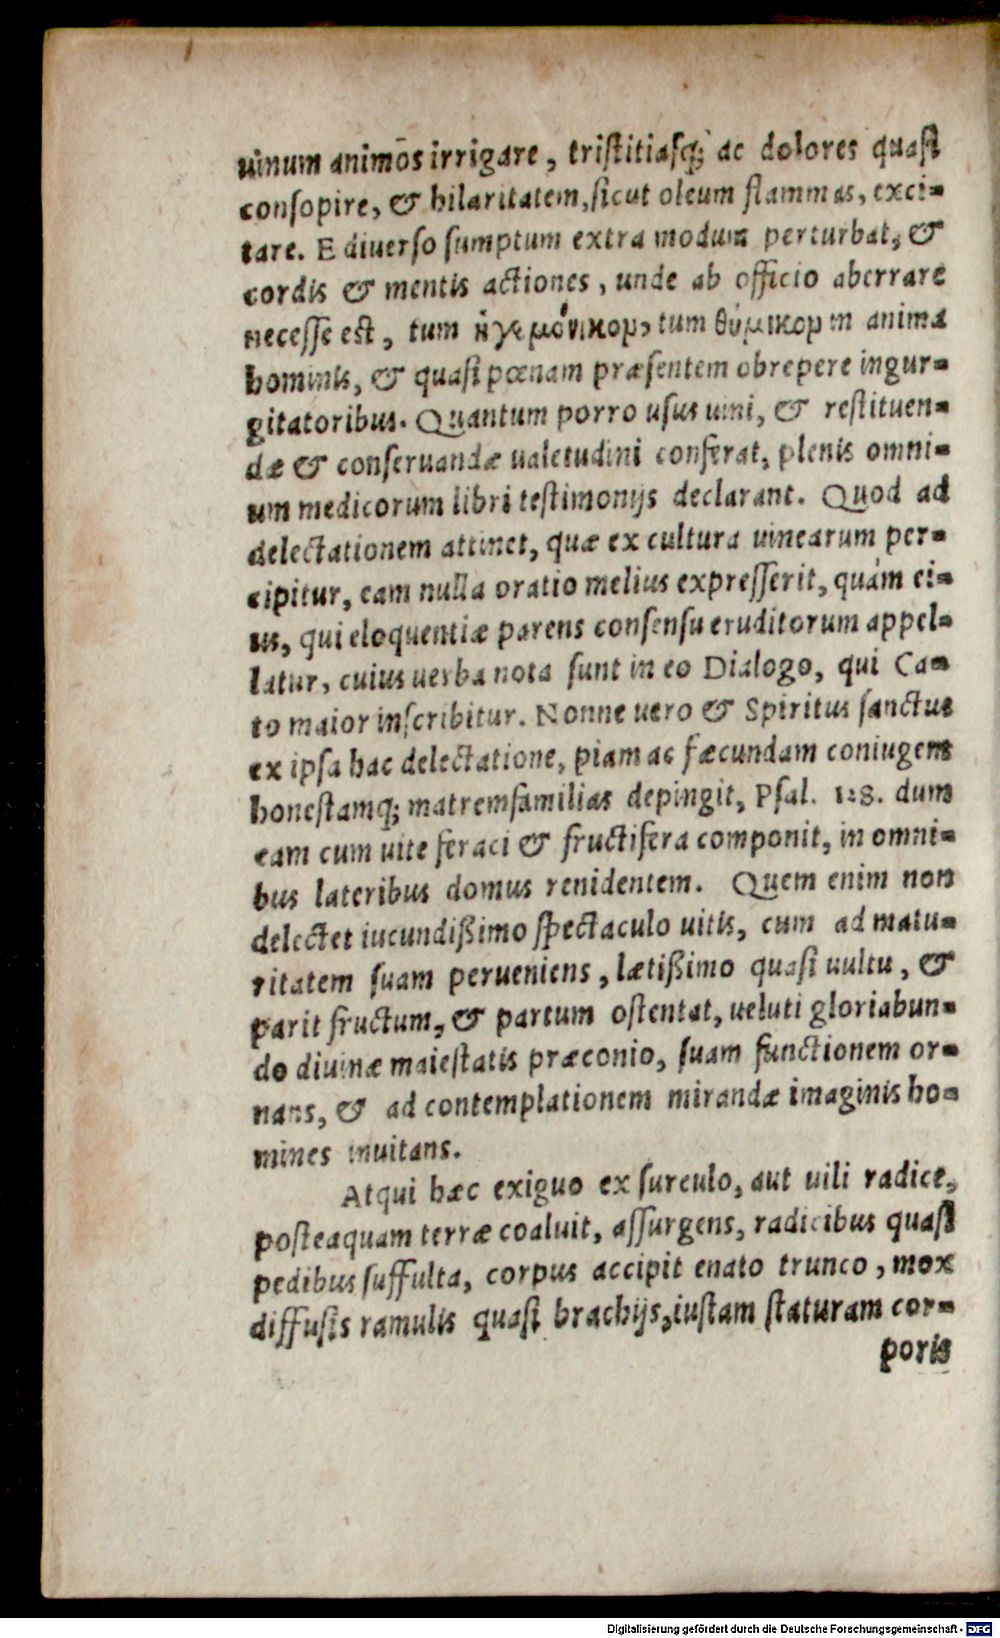 uinum animōs irrigare, tristitiasq́; ac dolores quasi
consopire, & hilaritatem, sicut oleum flammas, exci-
tare. E diuerso sumptum extra modum perturbat, &
cordis & mentis actiones, unde ab officio aberrare
necesse est, tum ἡγεμόνικον, tum θύμικον in anima
hominis, & quasi pœnam præsentem obrepere ingur-
gitatoribus. Quantum porro usus uini, & restituen-
dæ & conseruandæ ualetudini conferat, plenis omni-
um medicorum libri testimonijs declarant. Quod ad
delectationem attinet, quæ ex cultura uinearum per-
cipitur, eam nulla oratio melius expresserit, quàm ei-
us, qui eloquentiæ parens consensu eruditorum appel-
latur, cuius uerba nota sunt in eo Dialogo, qui Ca-
to maior inscribitur. Nonne uero & Spiritus sanctus
ex ipsa hac delectatione, piam ac fæcundam coniugem
honestamq; matremfamilias depingit, Psal. 128. dum
eam cum uite feraci & fructifera componit, in omni-
bus lateribus domus renidentem. Quem enim non
delectet iucundißimo spectaculo uitis, cum ad matu-
ritatem suam perueniens, lætißimo quasi uultu, &
parit fructum, & partum ostentat, ueluti gloriabun-
do diuinæ maiestatis præconio, suam functionem or-
nans, & ad contemplationem mirandæ imaginis ho-
mines inuitans.
Atqui hæc exiguo ex surculo, aut uili radice,
posteaquam terræ coaluit, assurgens, radicibus quasi
pedibus suffulta, corpus accipit enato trunco, mox
diffusis ramulis quasi brachijs, iustam staturam cor-
poris
Digitalisierung gefördert durch die Deutsche Forschungsgemeinschaft - DFG